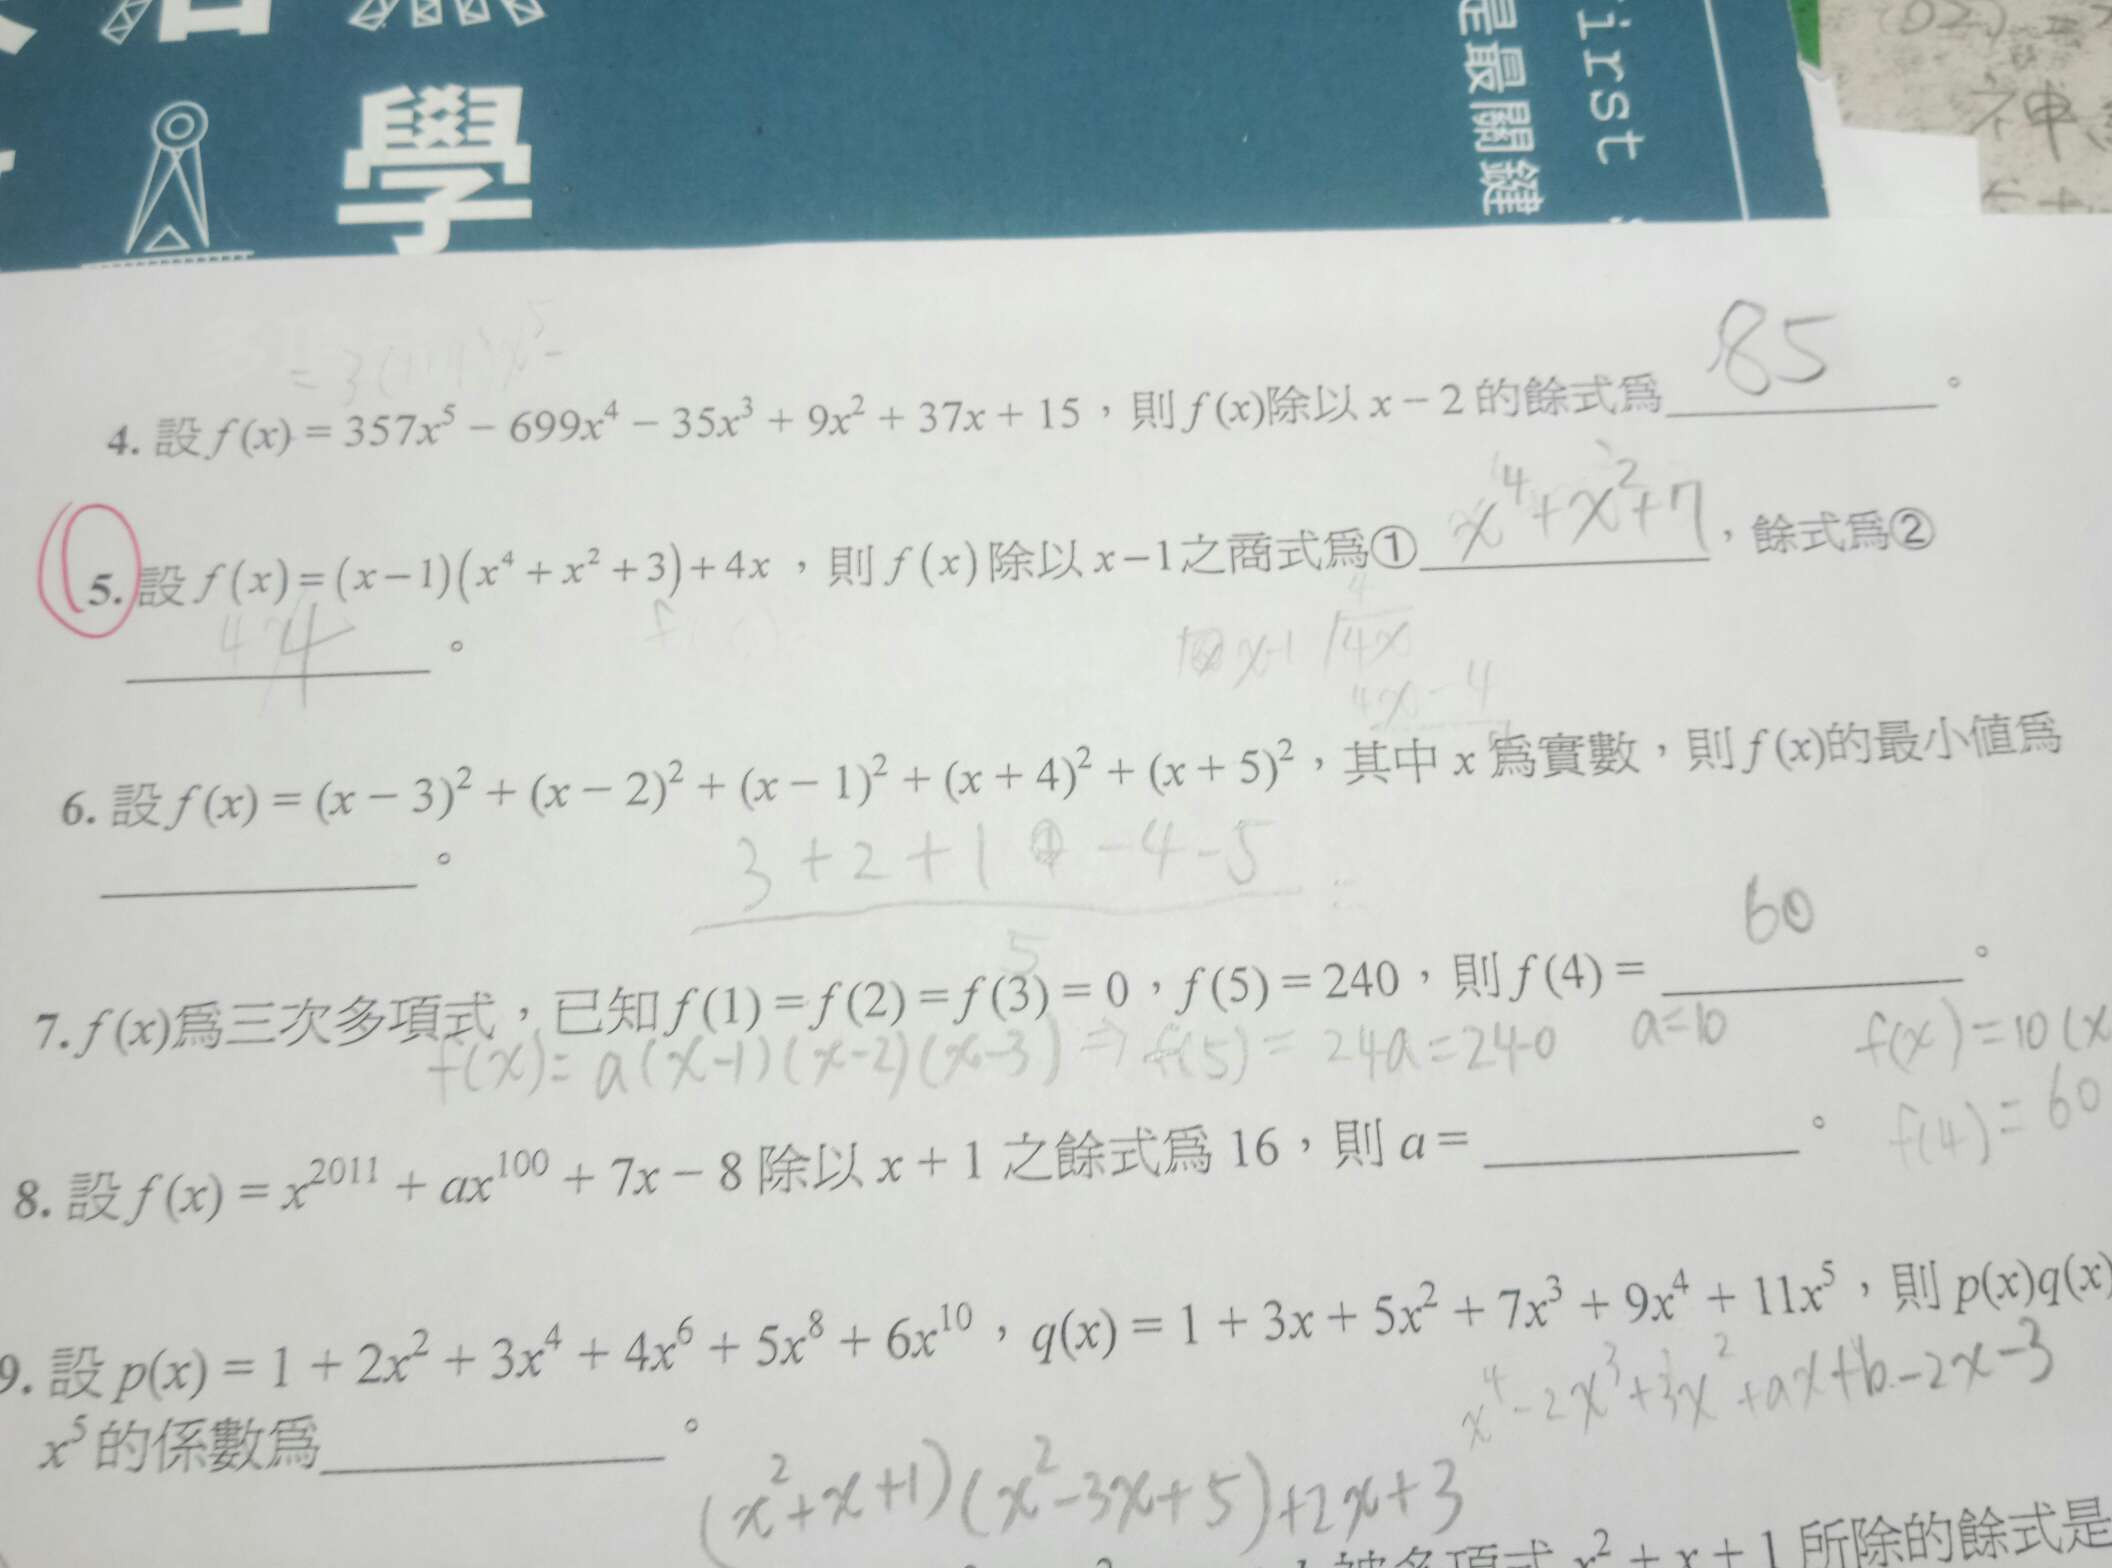 學
是最關鍵
irst
神
85
4. 設 f(x) = 357x⁵ − 699x⁴ − 35x³ + 9x² + 37x + 15，則 f(x)除以 x − 2 的餘式為________。
x⁴+x²+7
5. 設 f(x) = (x−1)(x⁴ + x² + 3) + 4x ，則 f(x) 除以 x−1之商式為①________，餘式為②
4
________。
4
x-1 4x
4x-4
6. 設 f(x) = (x − 3)² + (x − 2)² + (x − 1)² + (x + 4)² + (x + 5)²，其中 x 為實數，則 f(x)的最小值為
________。
3+2+1 -4-5
5
60
7. f(x)為三次多項式，已知 f(1) = f(2) = f(3) = 0，f(5) = 240，則 f(4) = ________。
f(x)= a(x-1)(x-2)(x-3) ⇒ f(5)= 24a=240 a=10 f(x)=10(x
f(4)=60
8. 設 f(x) = x²⁰¹¹ + ax¹⁰⁰ + 7x − 8 除以 x + 1 之餘式為 16，則 a = ________。
9. 設 p(x) = 1 + 2x² + 3x⁴ + 4x⁶ + 5x⁸ + 6x¹⁰，q(x) = 1 + 3x + 5x² + 7x³ + 9x⁴ + 11x⁵，則 p(x)q(x)
x⁴-2x³+3x²+ax+b-2x-3
x⁵的係數為________。
(x²+x+1)(x²-3x+5)+2x+3
被多項式 x² + x + 1 所除的餘式是